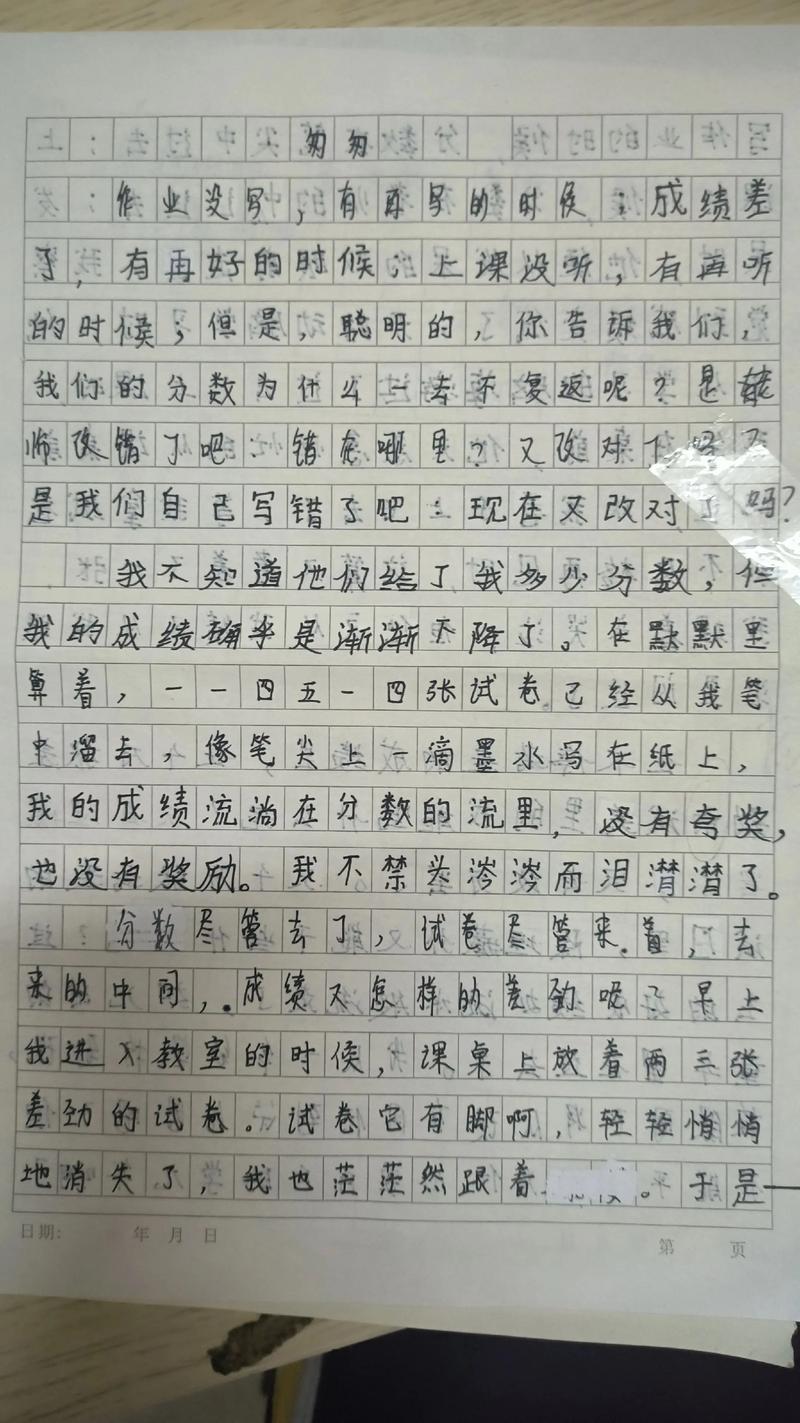 匆匆
作业没写，有再写的时候；成绩差
了，有再好的时候；上课没听，有再听
的时候；但是，聪明的，你告诉我们，
我们的分数为什么一去不复返呢？是
师改错了吧：错在哪里？又改对了吗？
是我们自己写错了吧：现在又改对了吗？
我不知道他们给了我多少分数，但
我的成绩确乎是渐渐下降了。在默默里
算着，一一四五一四张试卷已经从我笔
中溜去，像笔尖上一滴墨水写在纸上，
我的成绩流淌在分数的流里，没有夸奖，
也没有奖励。我不禁头涔涔而泪潸潸了。
分数尽管去了，试卷尽管来着，去
来的中间，成绩又怎样的差劲呢？早上
我进入教室的时候，课桌上放着两三张
差劲的试卷。试卷它有脚啊，轻轻悄悄
地消失了，我也茫茫然跟着。于是
日期： 年 月 日
第 页